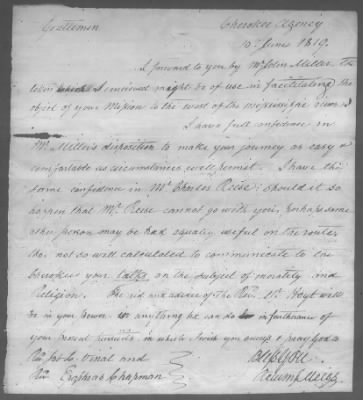 Gentlemen Cherokee Agency
10th June 1819.
I forward to you by Mr. John Miller the
I conceived might be of use in facilitating the
object of your Mission to the west of the Mississippi river
I have full confidence in
Mr. Miller's disposition to make your journey as easy &
comfortable as circumstances will permit. I have the
same confidence in Mr. Charles Reese: should it so
happen that Mr. Reese cannot go with you, perhaps some
other person may be had equally useful on the route
tho. not so well calculated to communicate to the
Cherokees your talks on the subject of morality and
Religion. The aid and advice of the Revd. Mr. Hoyt will
be in your power & any thing he can do in furtherance of
your present pursuits, in which I wish you success & pray God to
bless you.
Revd. Job C. Vinal and
Revd. Epaphras Chapman Return J. Meigs